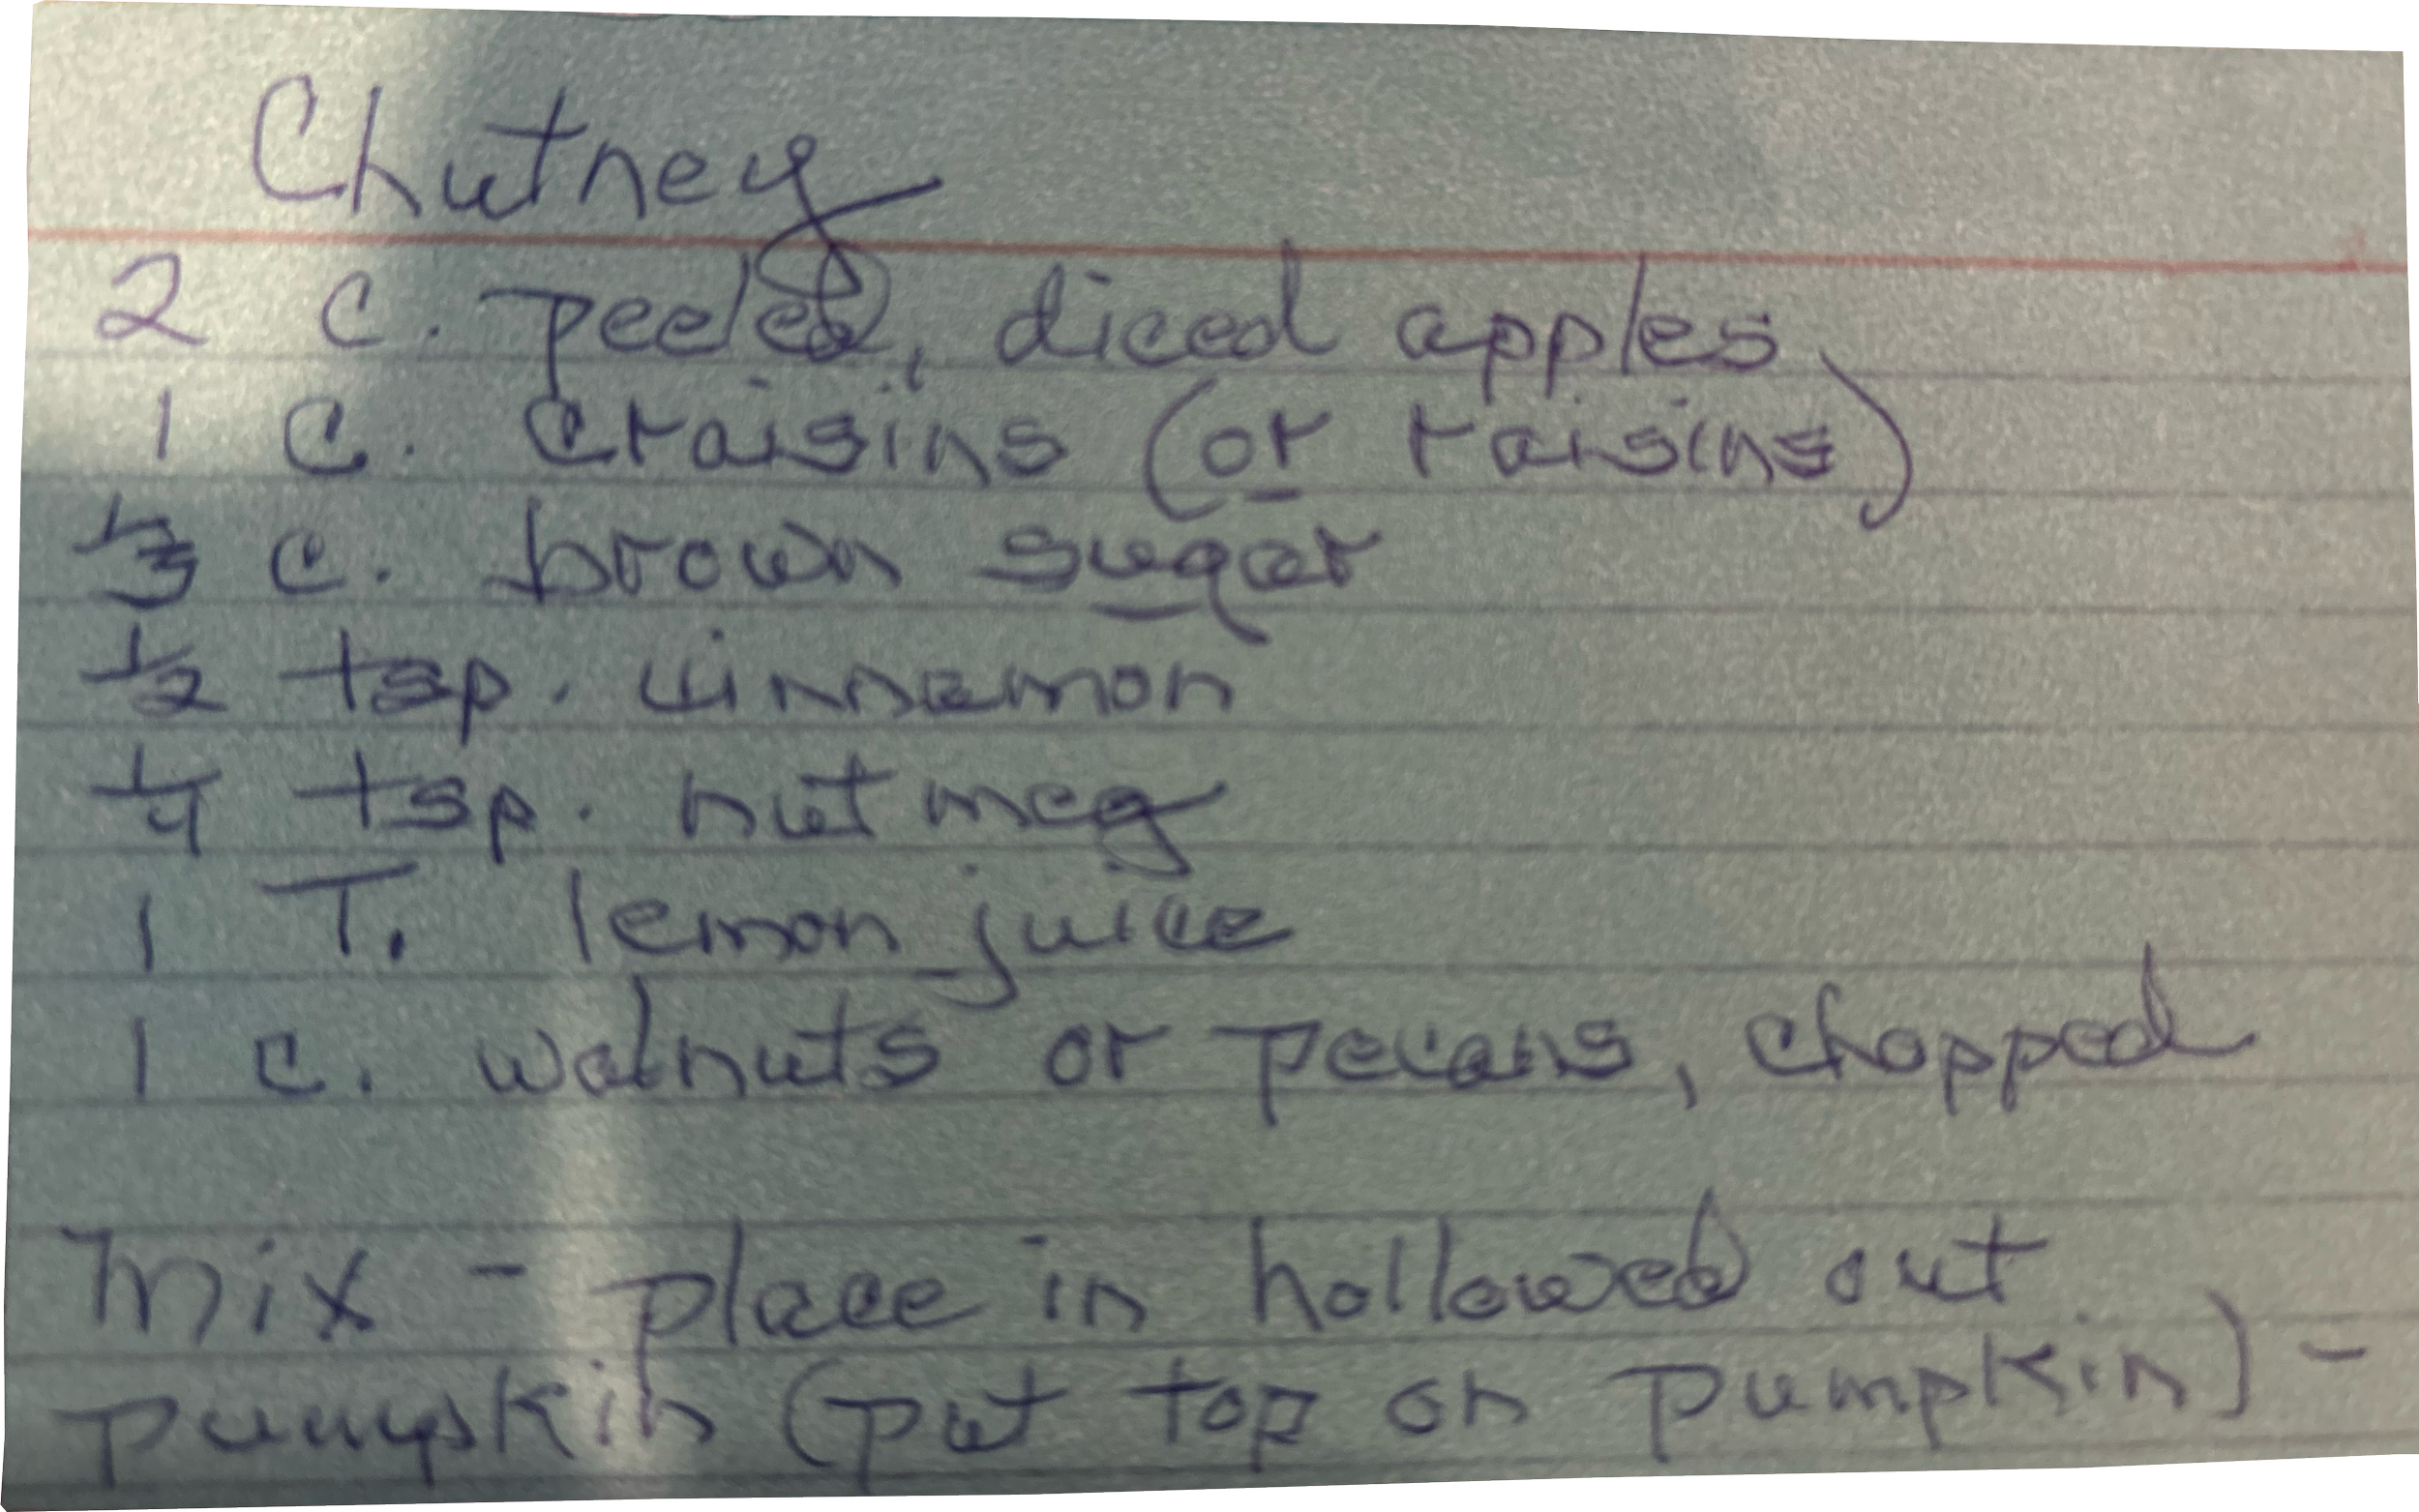 Chutney
2 c. peeled, diced apples
1 c. craisins (or raisins)
1/3 c. brown sugar
1/2 tsp. cinnamon
1/4 tsp. nutmeg
1 T. lemon juice
1 c. walnuts or pecans, chopped
Mix - place in hollowed out
pumpkin (put top on pumpkin) -